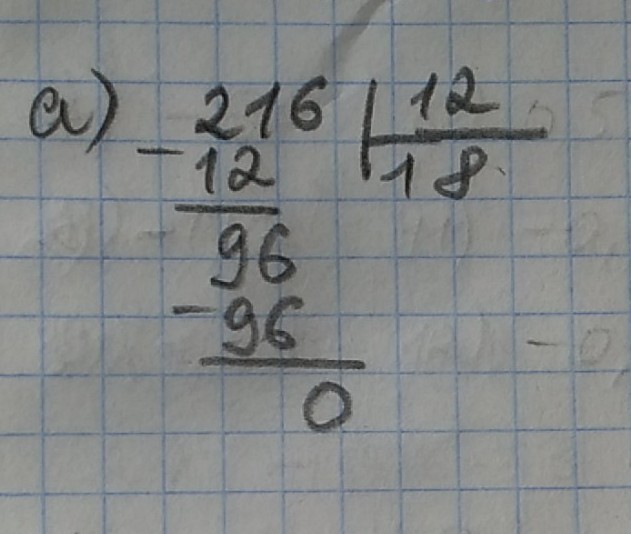 a) 216 | 12
-12 18
96
-96
0